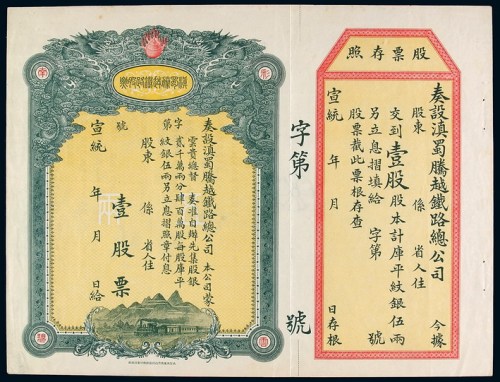 股票存照
奏設滇蜀騰越鐵路總公司 今據
股東 係 省人住
交到壹股股本計庫平紋銀伍兩
另立息摺填給 字第 號
股票截此票根存查
宣統 年 月 日存根
字第 號
奏設滇蜀騰越鐵路總公司 本公司蒙
雲貴總督 奏准自辦先集股銀
字 貳千萬兩分肆百萬股每股庫平
第 紋銀伍兩另立息摺照章付息
股東 係 省人住
號 壹股票
宣統 年 月 日給